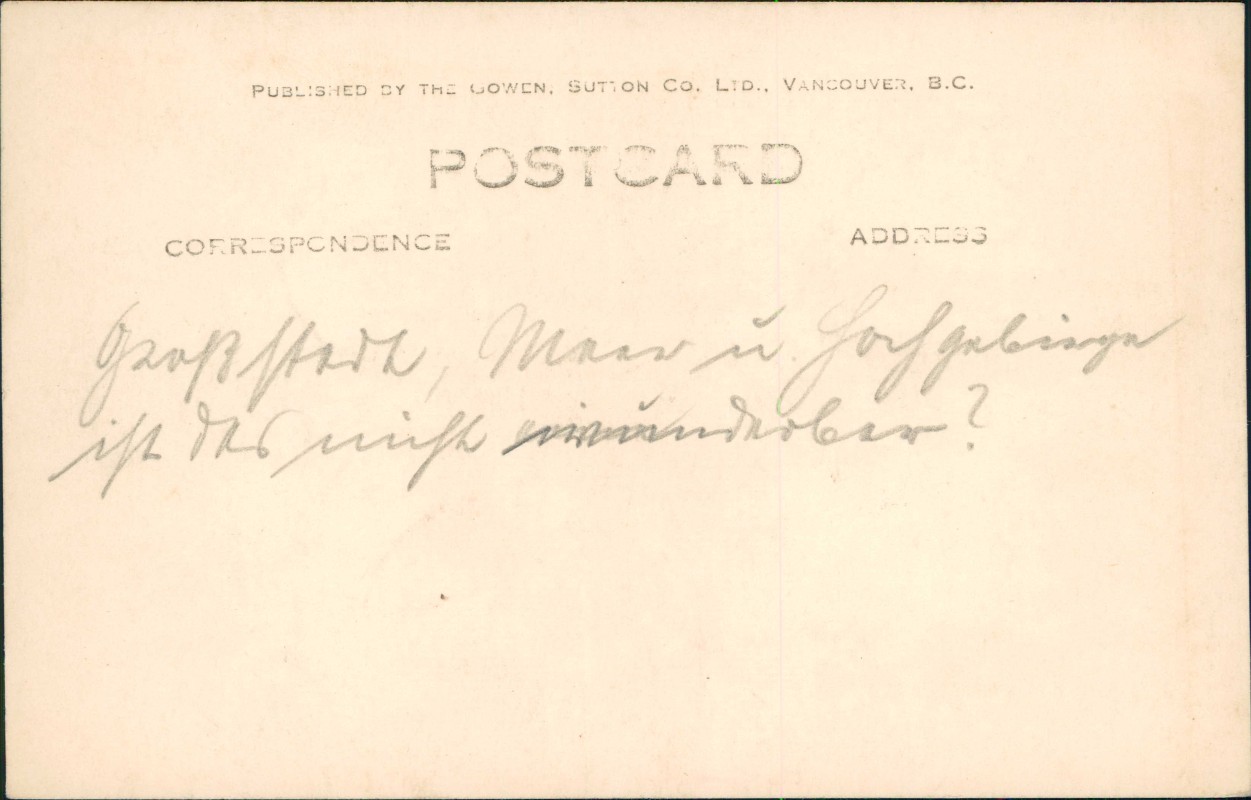 PUBLISHED BY THE GOWEN, SUTTON CO. LTD., VANCOUVER, B.C.
POSTCARD
CORRESPONDENCE
ADDRESS
Großstadt, Meer u. Hochgebirge
ist das nicht wunderbar?